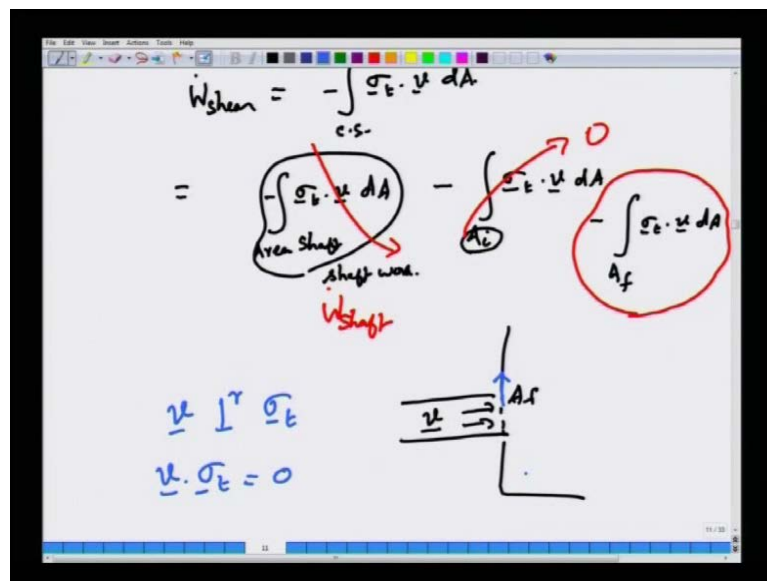 File Edit View Insert Actions Tools Help
Ẇshear = - ∫c.s. σt · v dA
= - ∫Area shaft σt · v dA - ∫Ai σt · v dA - ∫Af σt · v dA
0
shaft work.
Ẇshaft
v ⊥r σt
v Af
v · σt = 0
11 / 33
11